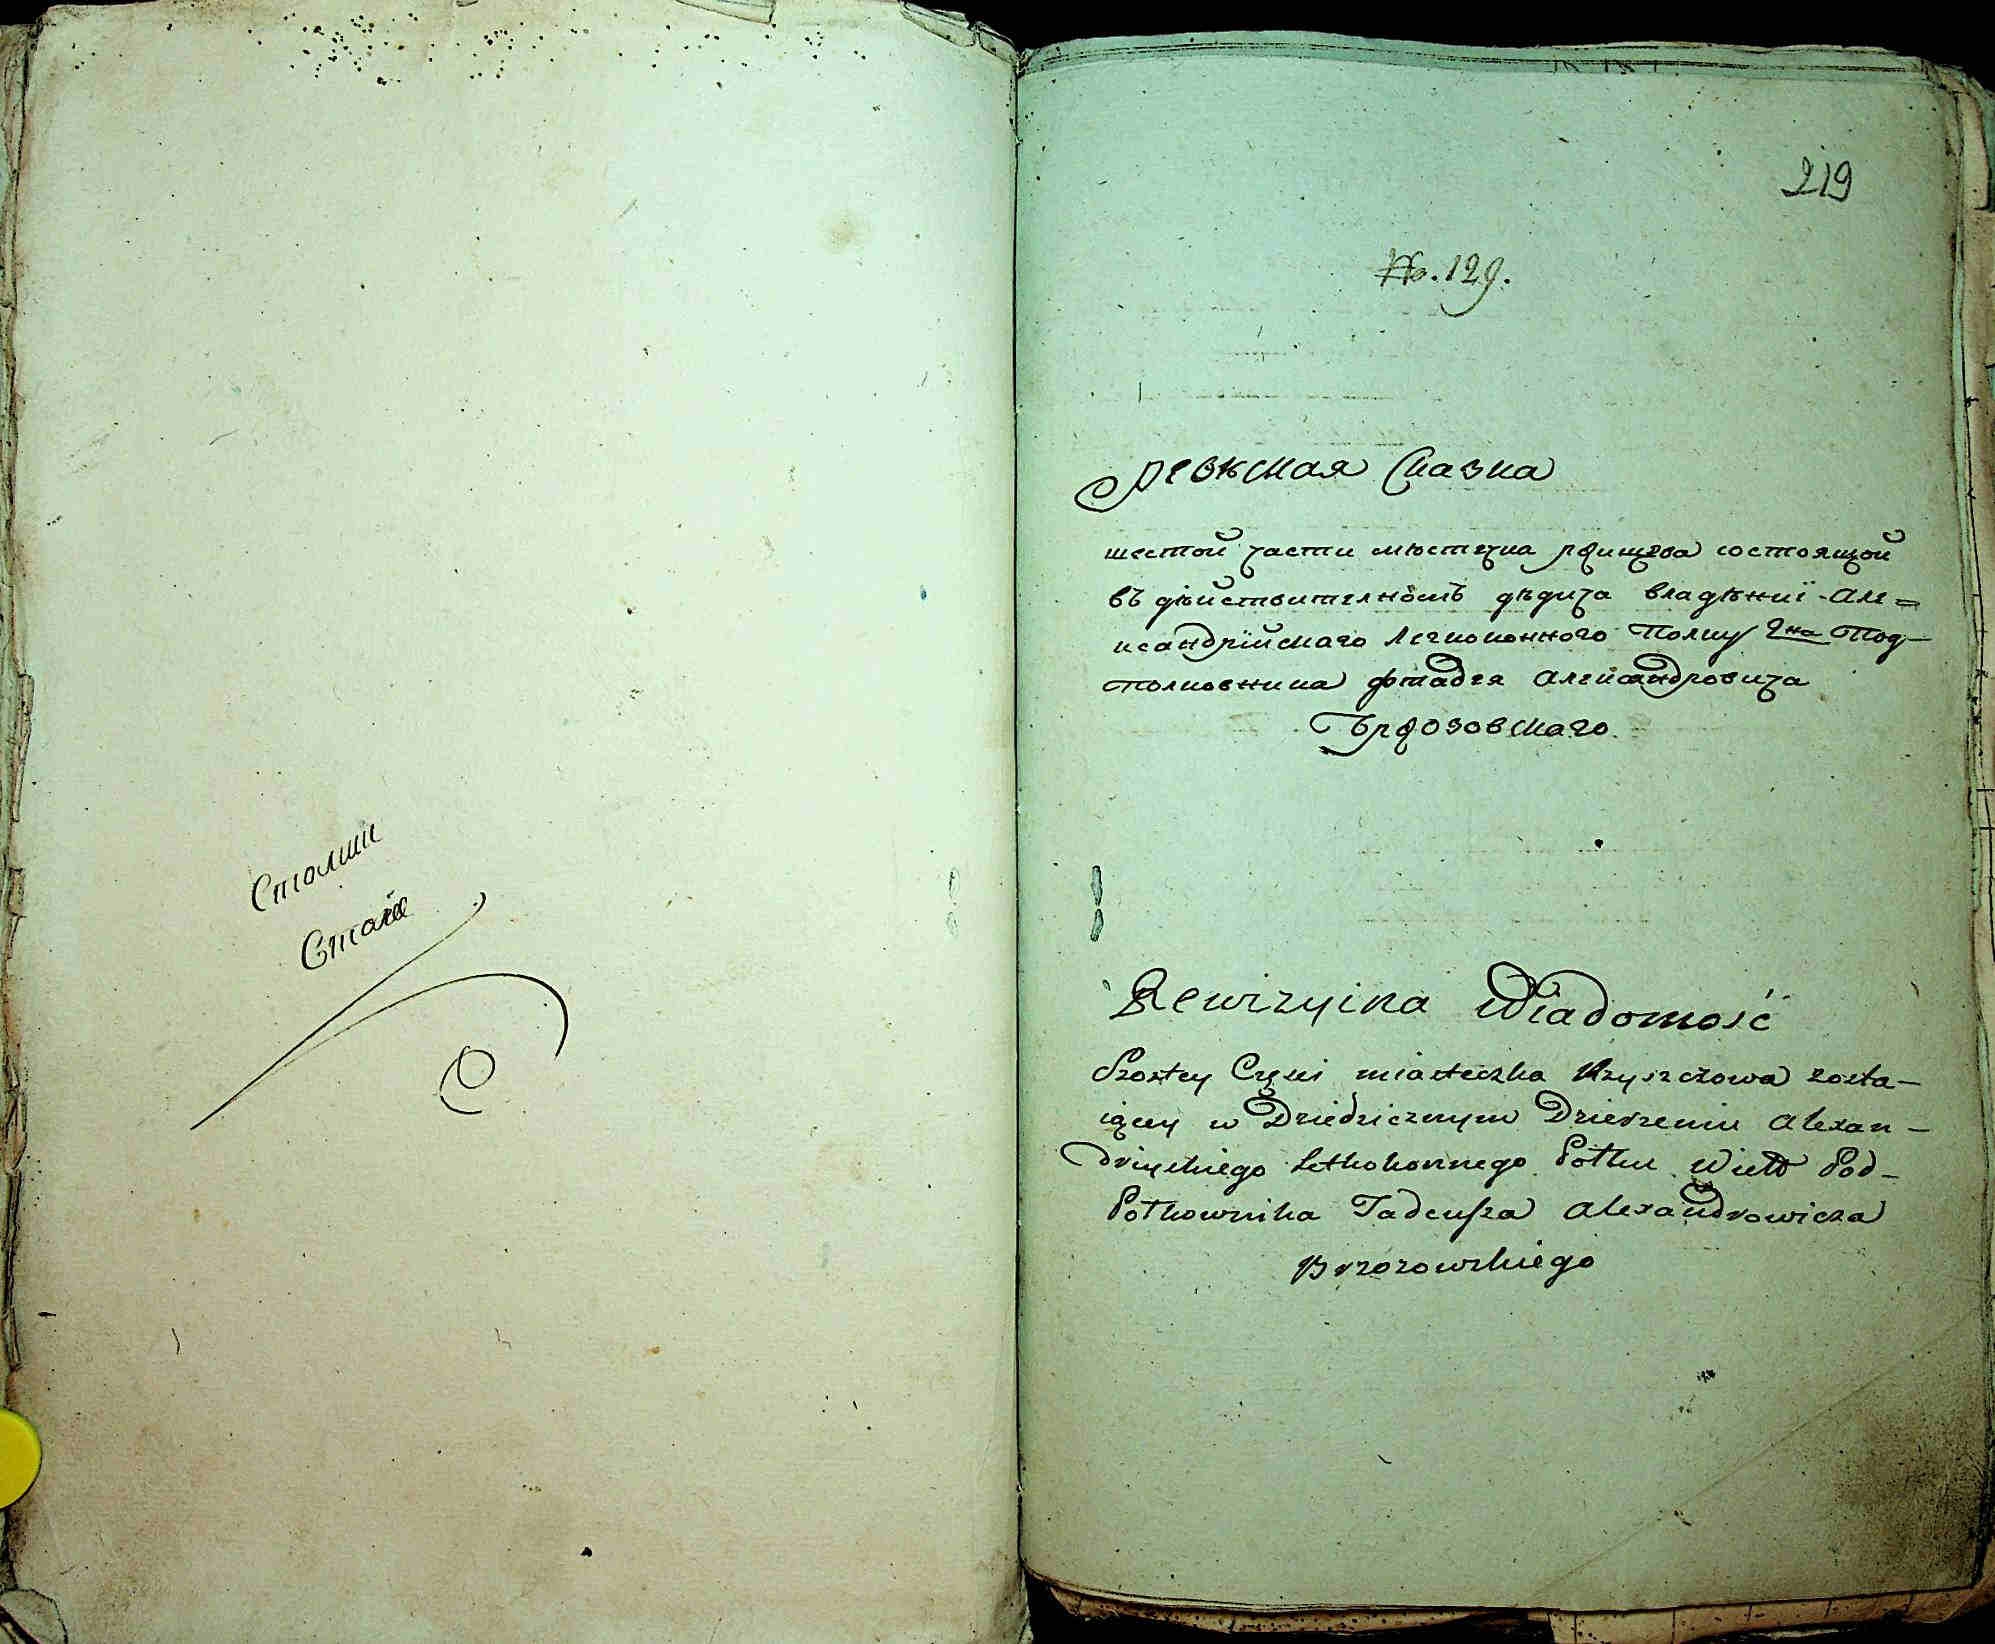 Столши
Стала
219
No. 129.
Ревѣская Сказка
шестой части мѣстечка Ржищева состоящой
въ дѣйствителномъ дѣдича владѣнiї Але=
ксандрїйскаго Легкоконного Полку Под-
полковника Фтадея Александровича
Бржозовскаго.
Rewizyina Wiadomość
Szostey Częsci miasteczka Rzyszczowa zosta-
iącey w Dziedzicznym Dzierzeniu Alexan-
dryiskiego Letkokonnego Połku Wielo Pod-
Połkownika Tadeusza Alexandrowicza
Brzozowskiego